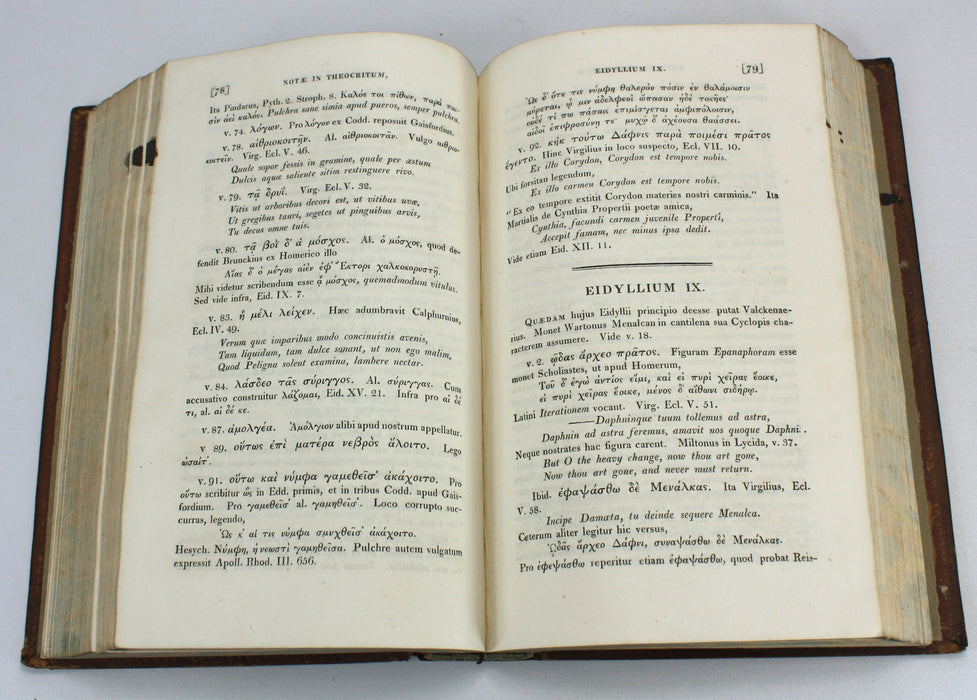 [78]
NOTÆ IN THEOCRITUM,
Ita Pindarus, Pyth. 2. Stroph. 8. Καλός τοι πίθων, παρὰ παι-
σὶν ἀεὶ καλός. Pulchra sane simia apud pueros, semper pulchra.
v. 74. λόγων. Pro λόγον ex Codd. reposuit Gaisfordius.
v. 78. αἰθριοκοιτῆν. Al. αἰθριοκοιτᾶν. Vulgo αἰθριο-
κοιτεῖν. Virg. Ecl. V. 46.
Quale sopor fessis in gramine, quale per æstum
Dulcis aquæ saliente sitim restinguere rivo.
v. 79. τᾷ δρυῒ. Virg. Ecl. V. 32.
Vitis ut arboribus decori est, ut vitibus uvæ,
Ut gregibus tauri, segetes ut pinguibus arvis,
Tu decus omne tuis.
v. 80. τᾷ βοῒ δ' ἁ μόσχος. Al. ὁ μόσχος, quod de-
fendit Brunckius ex Homerico illo
Αἴας δ' ὁ μέγας αἰὲν ἐφ' Ἕκτορι χαλκοκορυστῇ.
Mihi videtur scribendum esse ᾇ μόσχος, quemadmodum vitulus.
Sed vide infra, Eid. IX. 7.
v. 83. ἢ μέλι λείχεν. Hæc adumbravit Calphurnius,
Ecl. IV. 49.
Verum quæ imparibus modo concinuistis avenis,
Tam liquidum, tam dulce sonant, ut non ego malim,
Quod Peligna solent examina, lambere nectar.
v. 84. λάσδεο τᾶς σύριγγος. Al. σύριγγας. Cum
accusativo construitur λάζομαι, Eid. XV. 21. Infra pro αἰ δέ
τι, al. αἰ δέ κε.
v. 87. ἀμολγέα. Ἀμόλγιον alibi apud nostrum appellatur.
v 89. οὕτως ἐπὶ ματέρα νεβρὸς ἅλοιτο. Lego
ὡσαίτ'.
v. 91. οὕτω καὶ νύμφα γαμεθεῖσ' ἀκάχοιτο. Pro
οὕτω scribitur ὣς in Edd. primis, et in tribus Codd. apud Gais-
fordium. Pro γαμεθεῖσ' al. γαμηθεῖσ'. Loco corrupto suc-
curras, legendo,
Ὣς κ' αἴ τις νύμφα σμυχθεῖσ' ἀκάχοιτο.
Hesych. Νύμφη, ἡ νεωστὶ γαμηθεῖσα. Pulchre autem vulgatum
expressit Apoll. Rhod. III. 656.
EIDYLLIUM IX.
[79]
Ὡς δ' ὅτε τις νύμφη θαλερὸν πόσιν ἐν θαλάμοισιν
μύρεται, ᾧ μιν ἀδελφεοὶ ὤπασαν ἠδὲ τοκῆες·
οὐδέ τί πω πάσαις ἐπιμίσγεται ἀμφιπόλοισιν,
αἰδοῖ ἐπιφροσύνῃ τε· μυχῷ δ' ἀχέουσα θαάσσει.
v. 92. κἠκ τούτω Δάφνις παρὰ ποιμέσι πρᾶτος
ἔγεντο. Hinc Virgilius in loco suspecto, Ecl. VII. 10.
Ex illo Corydon, Corydon est tempore nobis.
Ubi forsitan legendum,
Ex illo carmen Corydon est tempore nobis.
"Ex eo tempore extitit Corydon materies nostri carminis." Ita
Martialis de Cynthia Propertii poetæ amica,
Cynthia, facundi carmen juvenile Propertî,
Accepit famam, nec minus ipsa dedit.
Vide etiam Eid. XII. 11.
EIDYLLIUM IX.
QUÆDAM hujus Eidyllii principio deesse putat Valckenae-
rius. Monet Wartonus Menalcan in cantilena sua Cyclopis cha-
racterem assumere. Vide v. 18.
v. 2. ᾠδᾶς ἄρχεο πρᾶτος. Figuram Epanaphoram esse
monet Scholiastes, ut apud Homerum,
Τοῦ δ' ἐγὼ ἀντίος εἶμι, καὶ εἰ πυρὶ χεῖρας ἔοικε,
εἰ πυρὶ χεῖρας ἔοικε, μένος δ' αἴθωνι σιδήρῳ.
Latini Iterationem vocant. Virg. Ecl. V. 51.
——Daphninque tuum tollemus ad astra,
Daphnin ad astra feremus, amavit nos quoque Daphni.
Neque nostrates hac figura carent. Miltonus in Lycida, v. 37.
But O the heavy change, now thou art gone,
Now thou art gone, and never must return.
Ibid. ἐφαψάσθω δὲ Μενάλκας. Ita Virgilius, Ecl.
V. 58.
Incipe Damœta, tu deinde sequere Menalca.
Ceterum aliter legitur hic versus,
ᾨδᾶς ἄρχεο Δάφνι, συναψάσθω δὲ Μενάλκας.
Pro ἐφεψάσθω reperitur etiam ἐφαψάσθω, quod probat Reis-